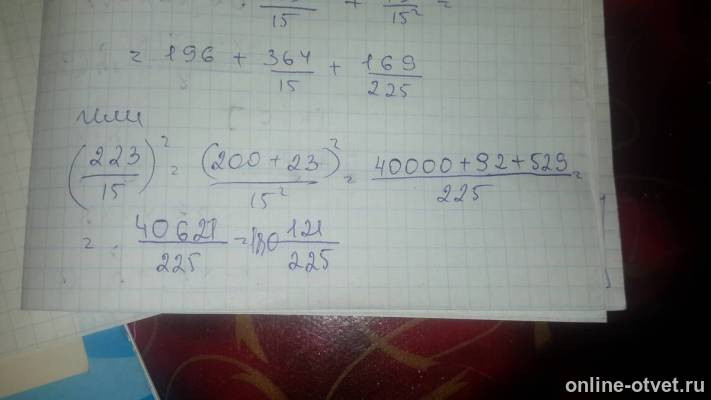 15 + 15² =
= 196 + 364/15 + 169/225
или
(223/15)² = (200 + 23)²/15² = 40000 + 92 + 529/225 =
= 40621/225 = 180 121/225
online-otvet.ru